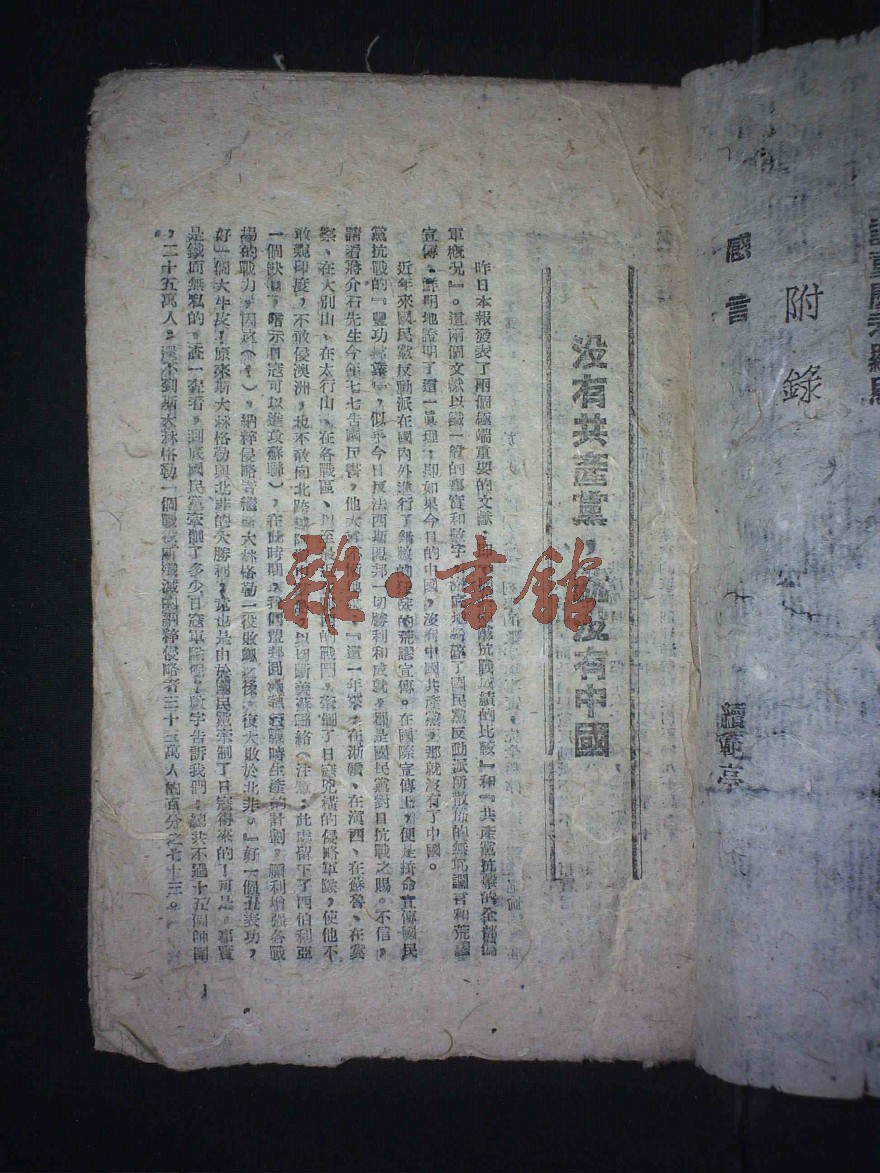 附錄
感言
續範亭
没有共產黨,就沒有中國
昨日本報發表了兩個極端重要的文獻,抗戰成績的比較』和『共產黨抗擊的全部僞
軍概况』。這兩個文獻以鐵一般的事實和數字,了國民黨反動派所散佈的無恥讕言和荒謬
宣傳,鮮明地證明了這一眞理:即如果今日的中國,沒有中國共產黨,那就沒有了中國。
近年來國民黨反動派在國內外進行了的荒謬宣傳。在國際宣傳上,便是拚命宣傳國民
黨抗戰的『豐功,似乎今日反法西斯盟邦一切勝利和成就,都是國民黨對日抗戰之賜。不信,
請看蔣介石先生今年七七告國民書,他大『這一年來,在浙贛、在滇西、在蘇魯、在冀
察、在大別山、在太行山、在各戰區、以至的戰鬥,牽制了日寇兇橫的侵略軍隊,使他不
敢窺印度,不敢侵澳洲,也不敢向北以切斷美蘇聯絡(注意:此處留下了西伯利亞
一個缺口,暗示日寇可以進攻蘇聯),在此時期,我們盟邦戰時生產的計劃,順利增强各戰
場的戰力,因此(!),納粹侵略者繼斯大林格勒一役敗衂之後,復大敗於北非。』好一個丑表功,
好一個大牛皮!原來斯大林格勒與北非的大勝利,竟也是由於國民黨牽制了日寇得來的!可是,事實
是鐵面無私的。查一查看,到底國民黨牽制了多少日寇軍隊呢?數字告訴我們:總共不過十五個師團
,二十五萬人,還不到斯大林格勒一個戰役所殲滅的納粹侵略者三十三萬人的百分之七十三。
1
雜·書館